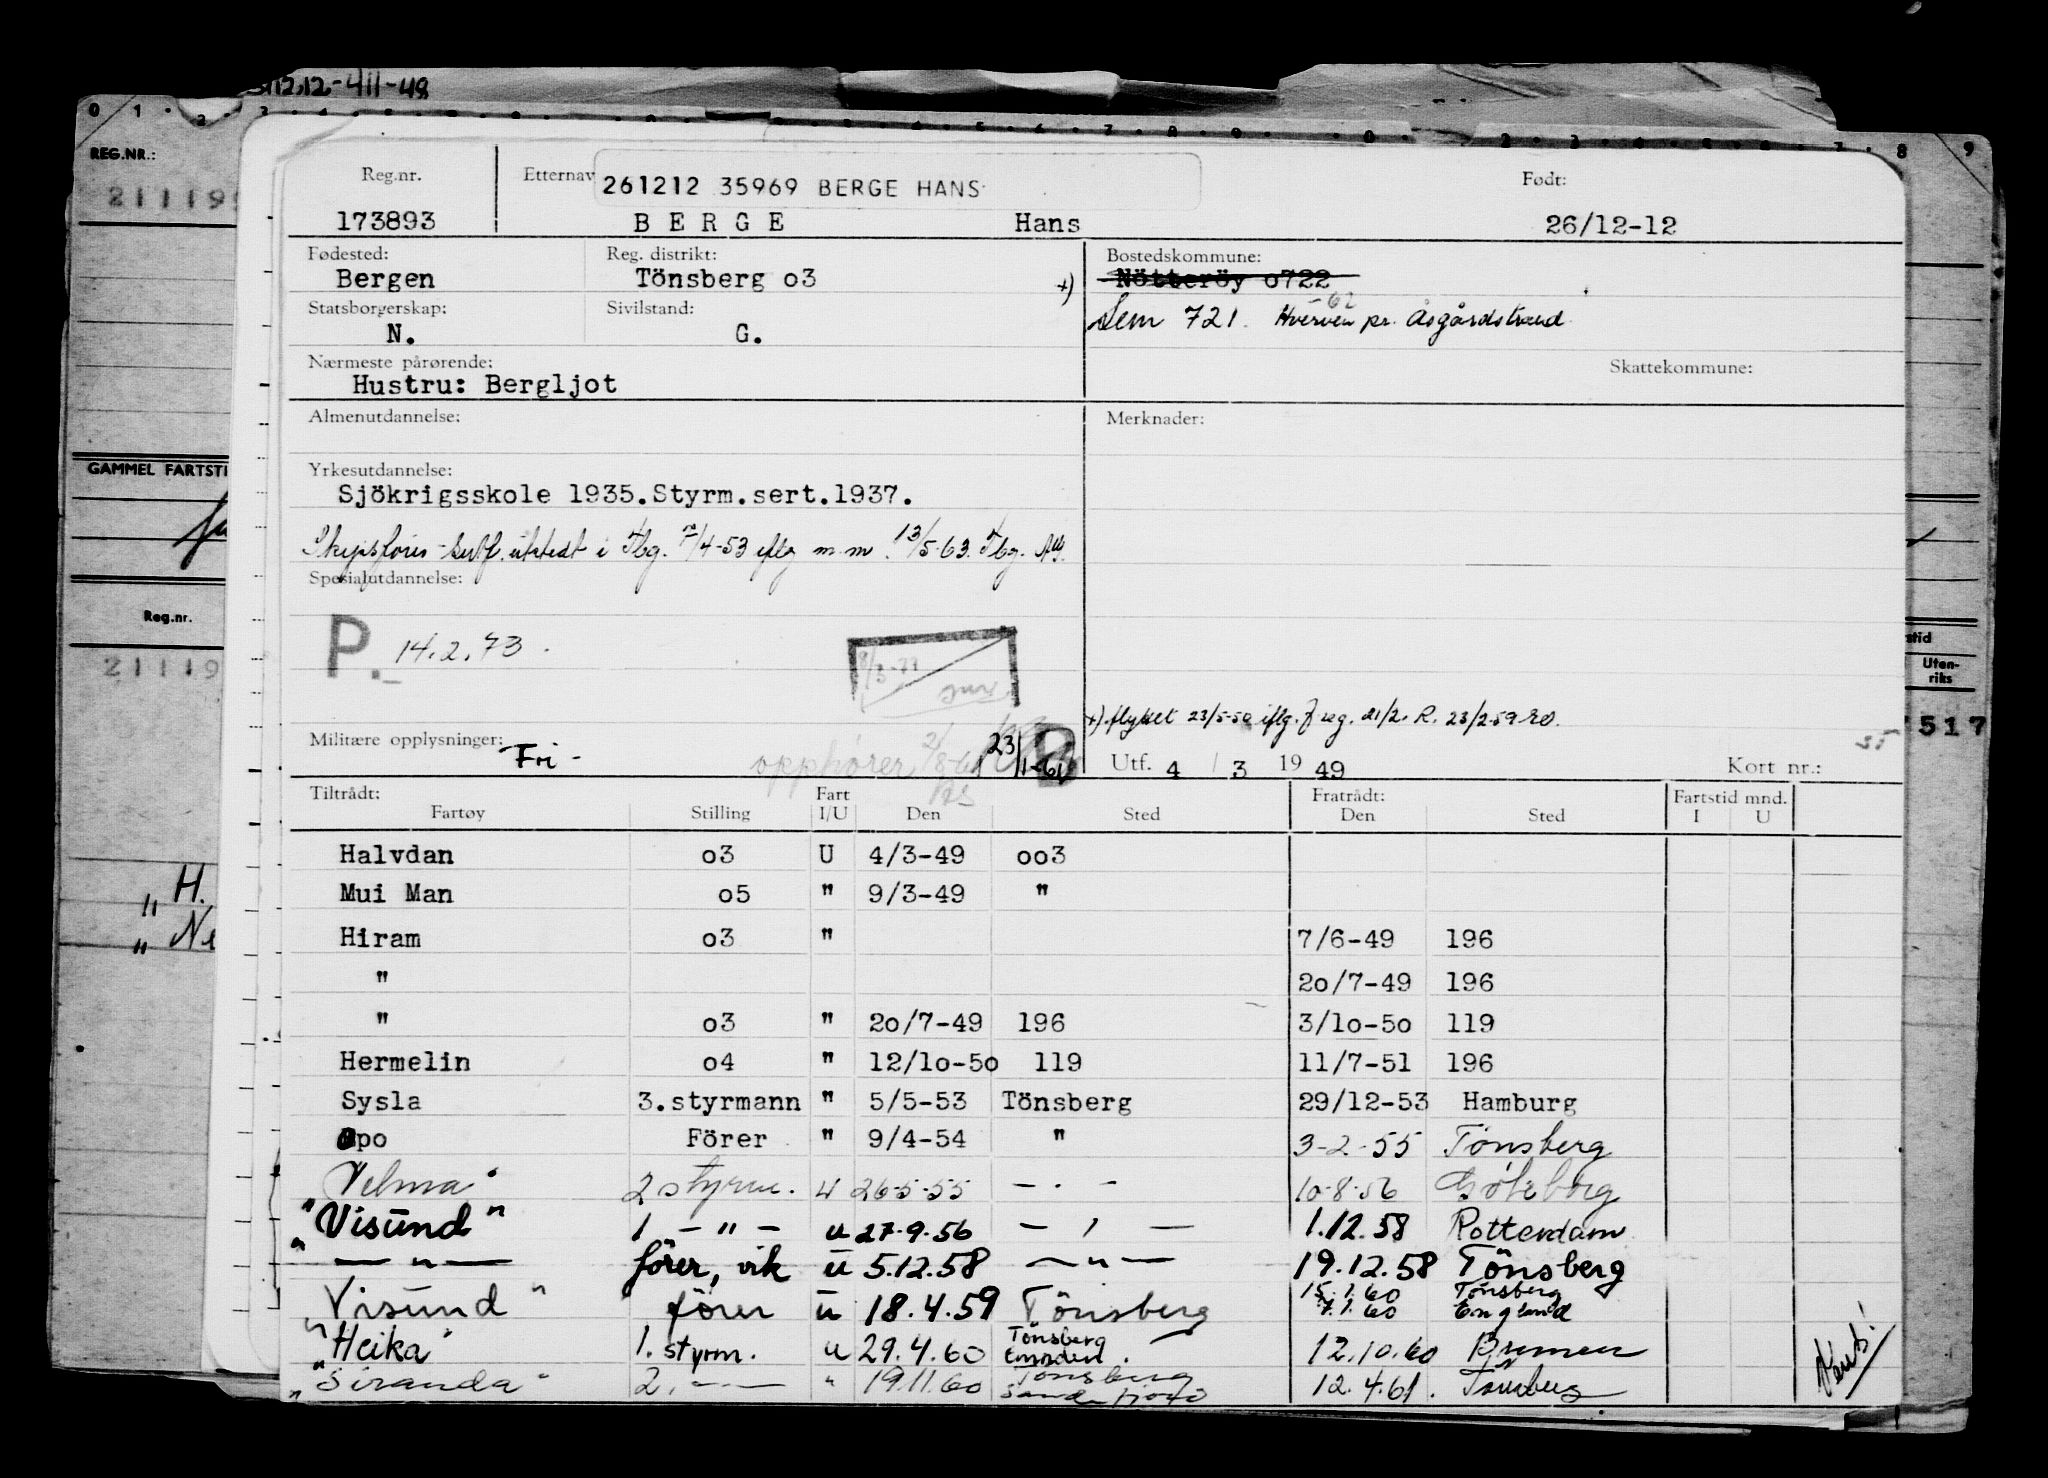 12.12-411-48
REG.NR.:
GAMMEL FARTSTI
Reg.nr.
21119
"H.
" Ne
Reg.nr. Etternav 261212 35969 BERGE HANS Født:
173893 BERGE Hans 26/12-12
Fødested: Reg. distrikt: Bostedskommune:
Bergen Tönsberg o3 +) Nötteröy o722
Statsborgerskap: Sivilstand: Sem 721. Hverven pr. Åsgårdstrand
N. G.
Nærmeste pårørende: Skattekommune:
Hustru: Bergljot
Almenutdannelse: Merknader:
Yrkesutdannelse:
Sjökrigsskole 1935.Styrm.sert.1937.
Skipsförer-sertf. utstedt i Tbg. /4-53 iflg m.m. 13/5-63. Tbg.
Spesialutdannelse:
P. 14.2.73.
+) flyttet 23/5-50 iflg. f.reg. 21/2. R. 23/2-59
Militære opplysninger: Fri - opphører 2/8-61 23/1-61 Utf. 4 / 3 19 49 Kort nr.:
Tiltrådt: Fart Fratrådt: Fartstid mnd.
Fartøy Stilling I/U Den Sted Den Sted I U
Halvdan o3 U 4/3-49 oo3
Mui Man o5 " 9/3-49 "
Hiram o3 " 7/6-49 196
" 2o/7-49 196
" o3 " 2o/7-49 196 3/1o-5o 119
Hermelin o4 " 12/1o-5o 119 11/7-51 196
Sysla 3.styrmann " 5/5-53 Tönsberg 29/12-53 Hamburg
Opo Förer " 9/4-54 " 3-2-55 Tönsberg
Velma" 2 styrm. u 26-5-55 - . - 10-8-56 Göteborg
"Visund" 1 - " - u 27.9.56 - , - 1.12.58 Rotterdam
" - " - förer, vik u 5.12.58 - " - 19.12.58 Tönsberg
Visund" förer u 18.4.59 Tönsberg 15.1.60 Tönsberg
7.1.60 England
"Heika" 1. styrm. u 29.4.60 Tönsberg 12.10.60 Bremen
"Siranda" 2. - - " 19.11.60 Tönsberg 12.4.61. Tönsberg
Sandefjord
Uten-
riks
517